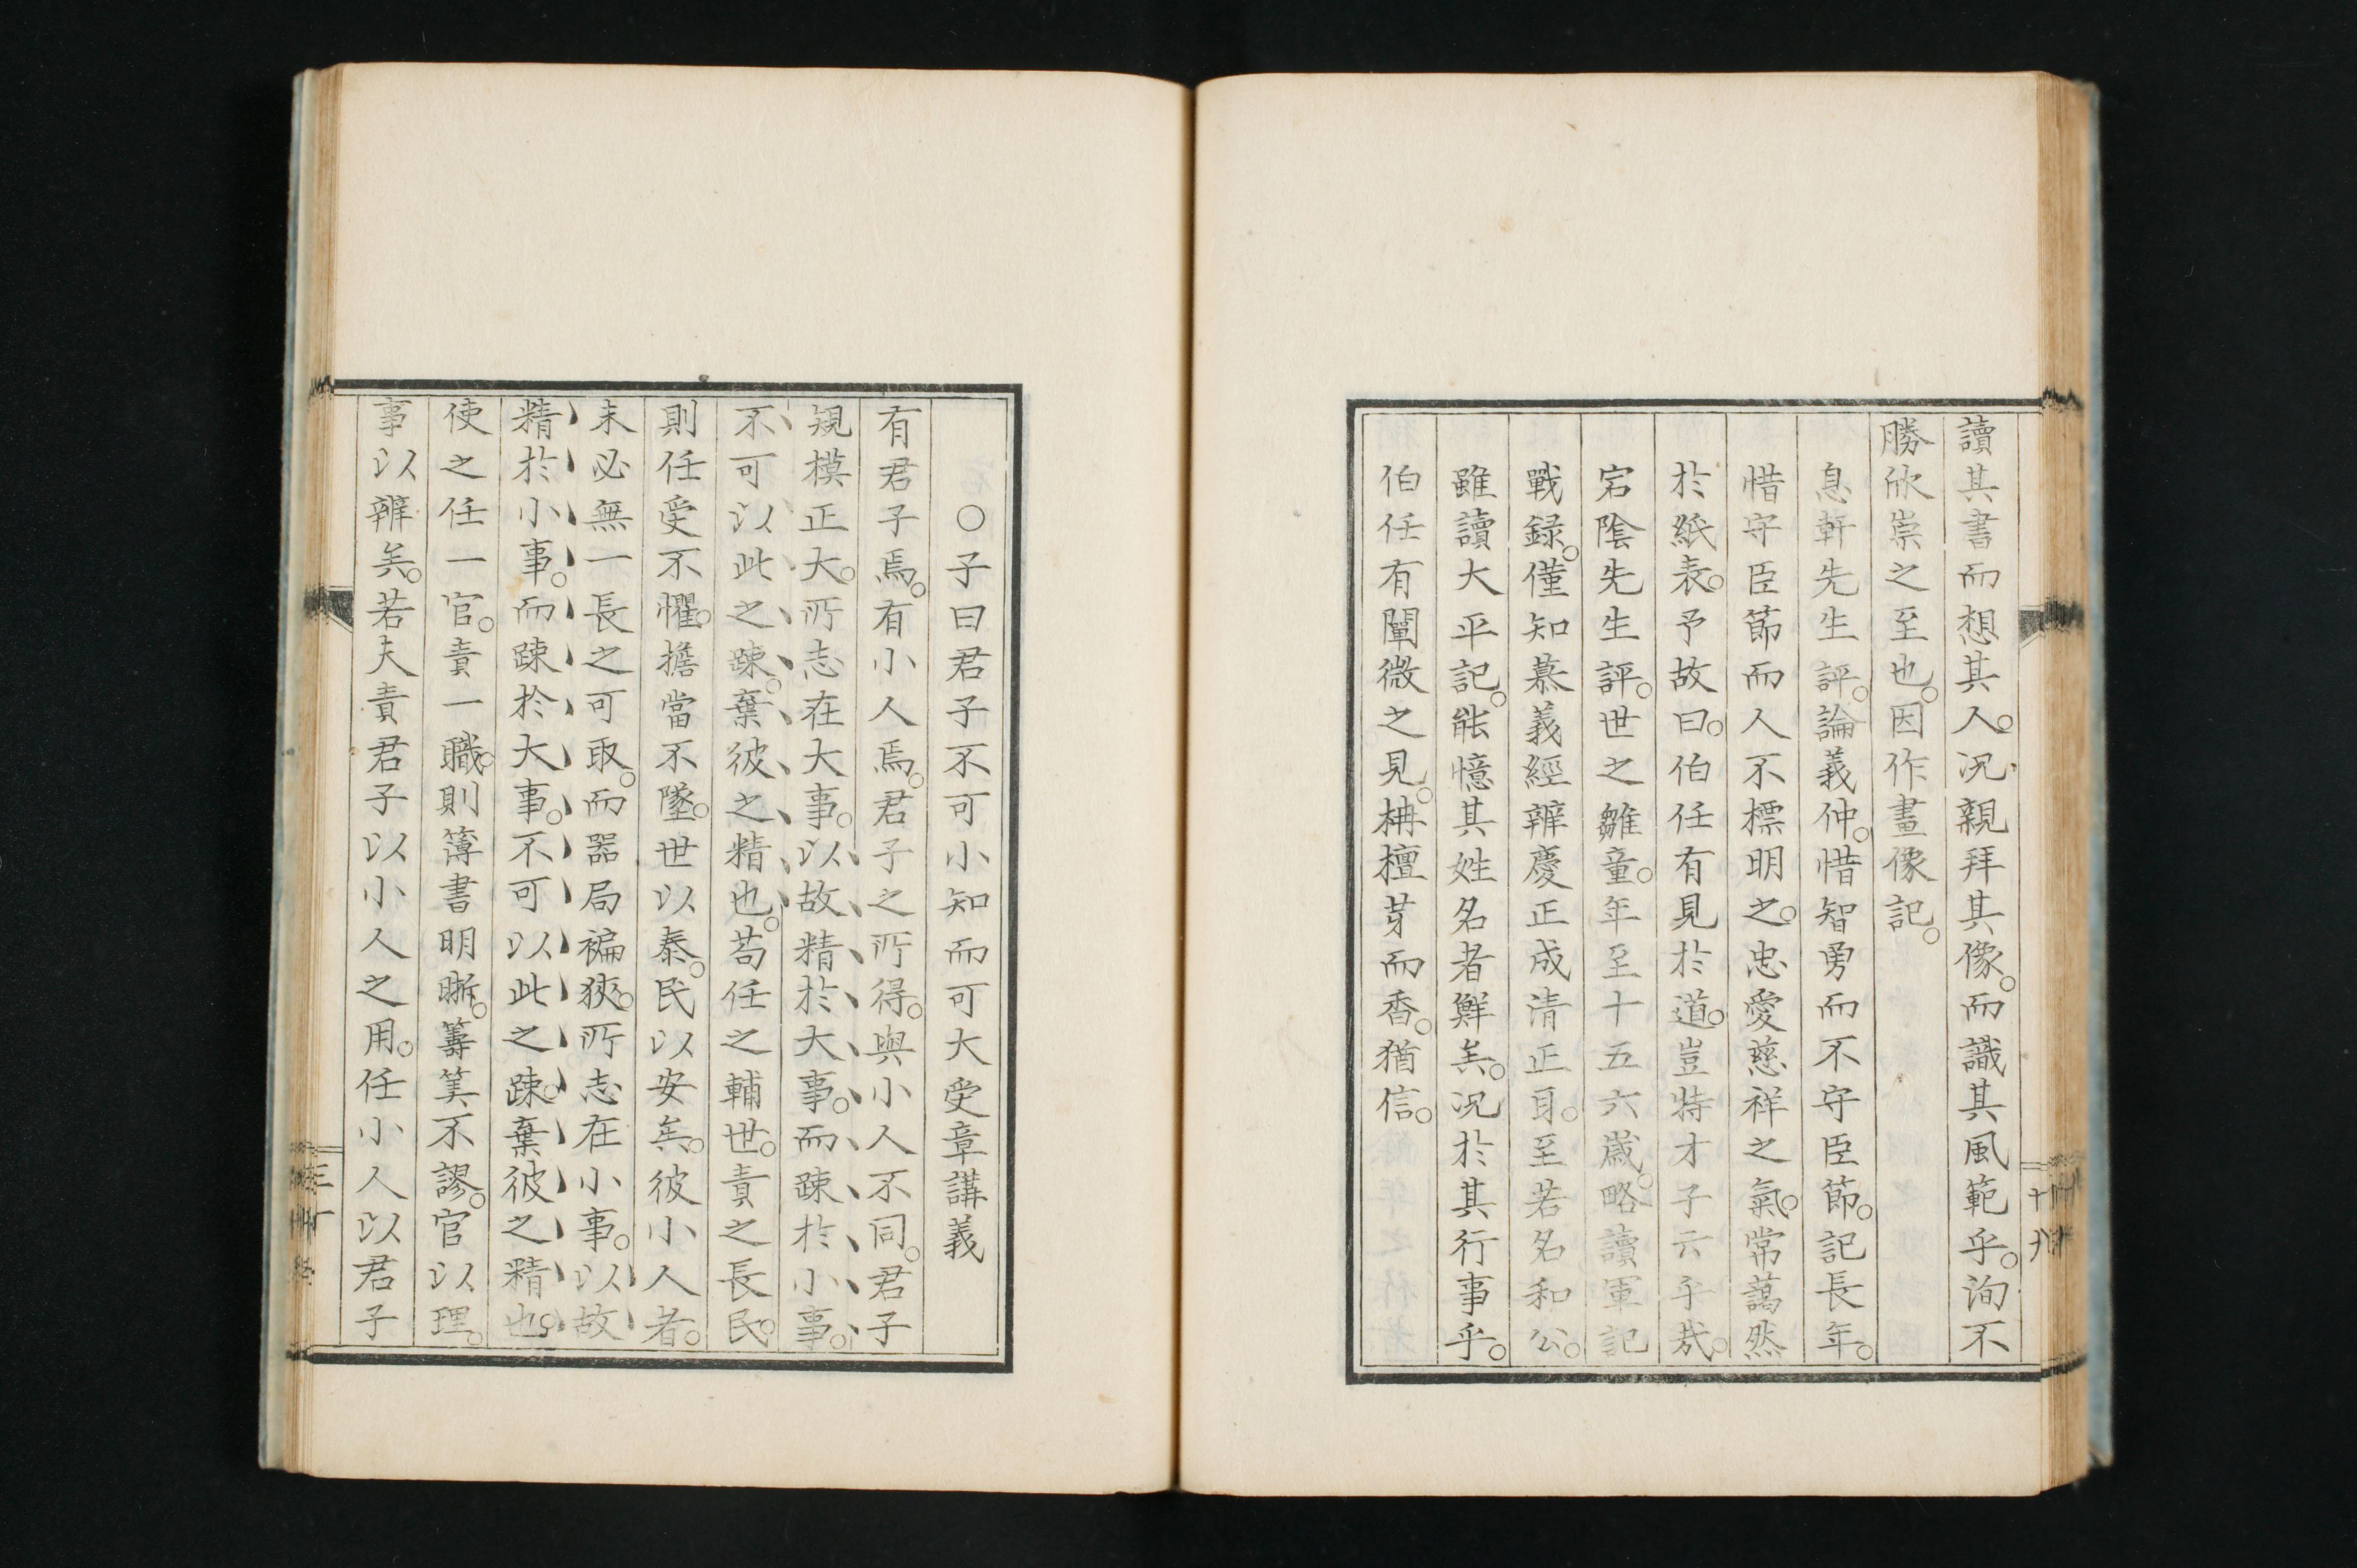 讀其書而想其人。況親拜其像。而識其風範乎。洵不
勝欣崇之至也。因作畫像記。
息軒先生評。論義仲。惜智勇而不守臣節。記長年。
惜守臣節而人不標明之。忠愛慈祥之氣。常藹然
於紙表。予故曰。伯任有見於道。豈特才子云乎哉。
宕陰先生評。世之雛童。年至十五六歲。略讀軍記
戰録。僅知慕義經辨慶正成清正耳。至若名和公。
雖讀大平記。能憶其姓名者鮮矣。況於其行事乎。
伯任有闡微之見。栴檀芽而香。猶信。
十九
〇子曰君子不可小知而可大受章講義
有君子焉。有小人焉。君子之所得。與小人不同。君子
規模正大。所志在大事。以故精於大事。而踈於小事。
不可以此之踈。棄彼之精也。苟任之輔世。責之長民。
則任受不懼。擔當不墜。世以泰。民以安矣。彼小人者。
未必無一長之可取。而器局褊狹。所志在小事。以故
精於小事。而踈於大事。不可以此之踈。棄彼之精也。
使之任一官。責一職。則簿書明晰。籌筭不謬。官以理。
事以辨矣。若夫責君子以小人之用。任小人以君子